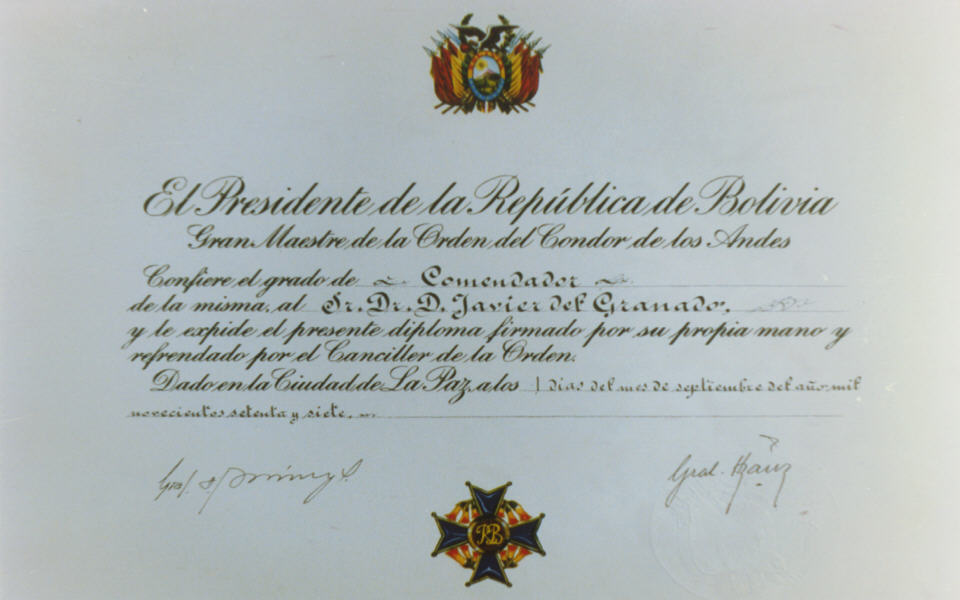 El Presidente de la República de Bolivia
Gran Maestre de la Orden del Condor de los Andes
Confiere el grado de Comendador
de la misma, al Sr. Dr. D. Javier del Granado,
y le expide el presente diploma firmado por su propia mano y
refrendado por el Canciller de la Orden.
Dado en la Ciudad de La Paz, a los 1 días del mes de septiembre del año mil
novecientos setenta y siete,
Gral.
RB